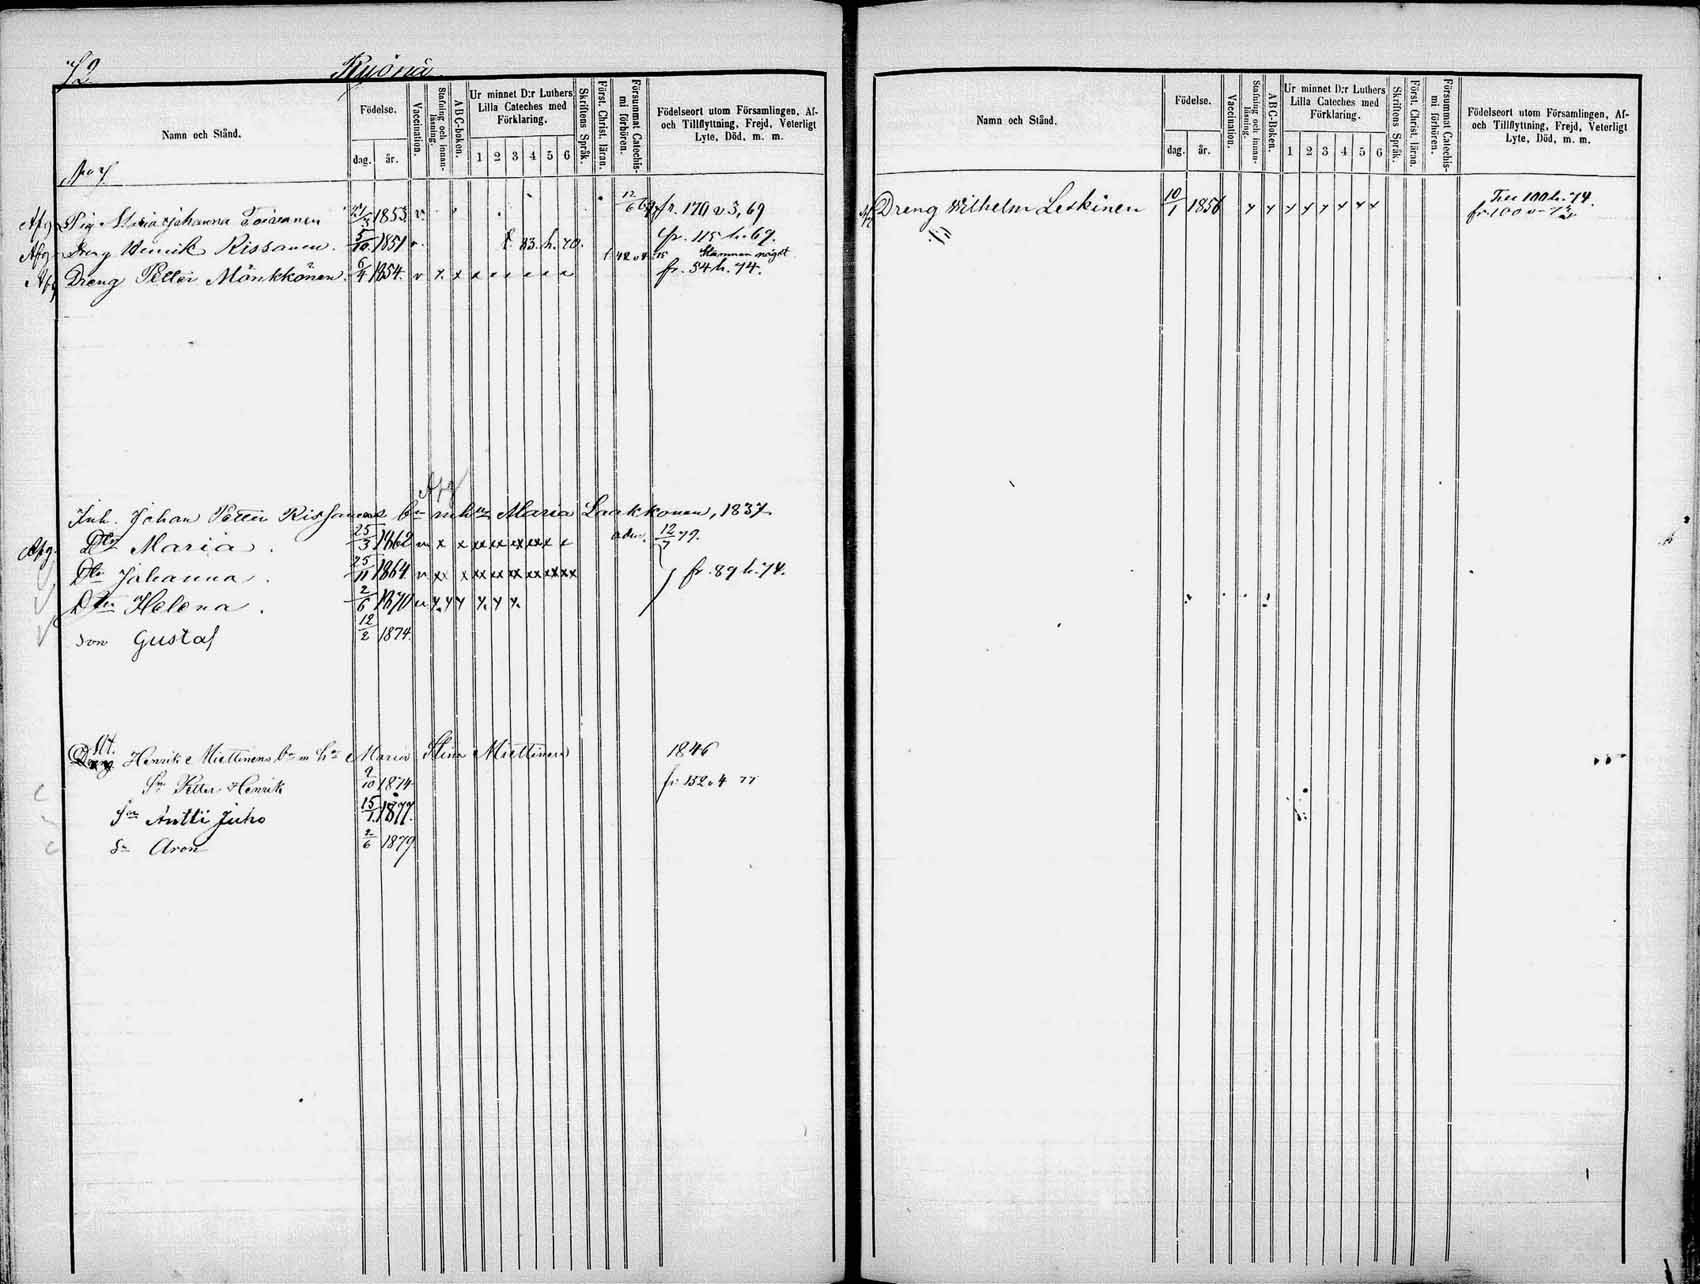 72 Ryönä
Namn och Stånd.
Födelse.
dag. år.
Vaccination.
Stafning och innan-läsning.
ABC-boken.
Ur minnet D:r Luthers Lilla Cateches med Förklaring.
1 2 3 4 5 6
Skriftens Språk.
Först. Christ. läran.
Försummat Catechismi förhören.
Födelseort utom Församlingen, Af- och Tillflyttning, Frejd, Veterligt Lyte, Död, m. m.
Afg Pig Maria Johanna Toivanen 1853 v fr. 170 v. 3, 69
Afg Dreng Henrik Rissanen. 5/10 1851 v. f. 83. h. 70. fr. 115 h. 69.
Stammar något
Afg Dreng Petter Mönkkönen. 6/4 1854. v x x x x x x x x fr. 54 h. 74.
Afg
Inh. Johan Petter Rissanens barn mhn Maria Laakkonen, 1837
Afg. Dtr Maria. 25/3 1862 v x x xx xx xx xxx x x adm. 12/7 79.
Dtr Johanna. 25/11 1864 v xx x xx xx xx xx xxx xx fr. 89 h. 74.
Dtr Helena. 2/6 1870 v
Son Gustaf 12/2 1874.
Dreng Henrik Miettinens bn m hu Maria Stina Miettinen 1846
Sn Petter Henrik 9/10 1874 fr 152 v 4 77
Son Antti Juho 15/1 1877.
Sn Aron 2/6 1879
Namn och Stånd.
Födelse.
dag. år.
Vaccination.
Stafning och innan-läsning.
ABC-boken.
Ur minnet D:r Luthers Lilla Cateches med Förklaring.
1 2 3 4 5 6
Skriftens Språk.
Först. Christ. läran.
Försummat Catechismi förhören.
Födelseort utom Församlingen, Af- och Tillflyttning, Frejd, Veterligt Lyte, Död, m. m.
Dreng Wilhelm Leskinen 10/1 1856 x x x x x x x x Till 100 h. 74.